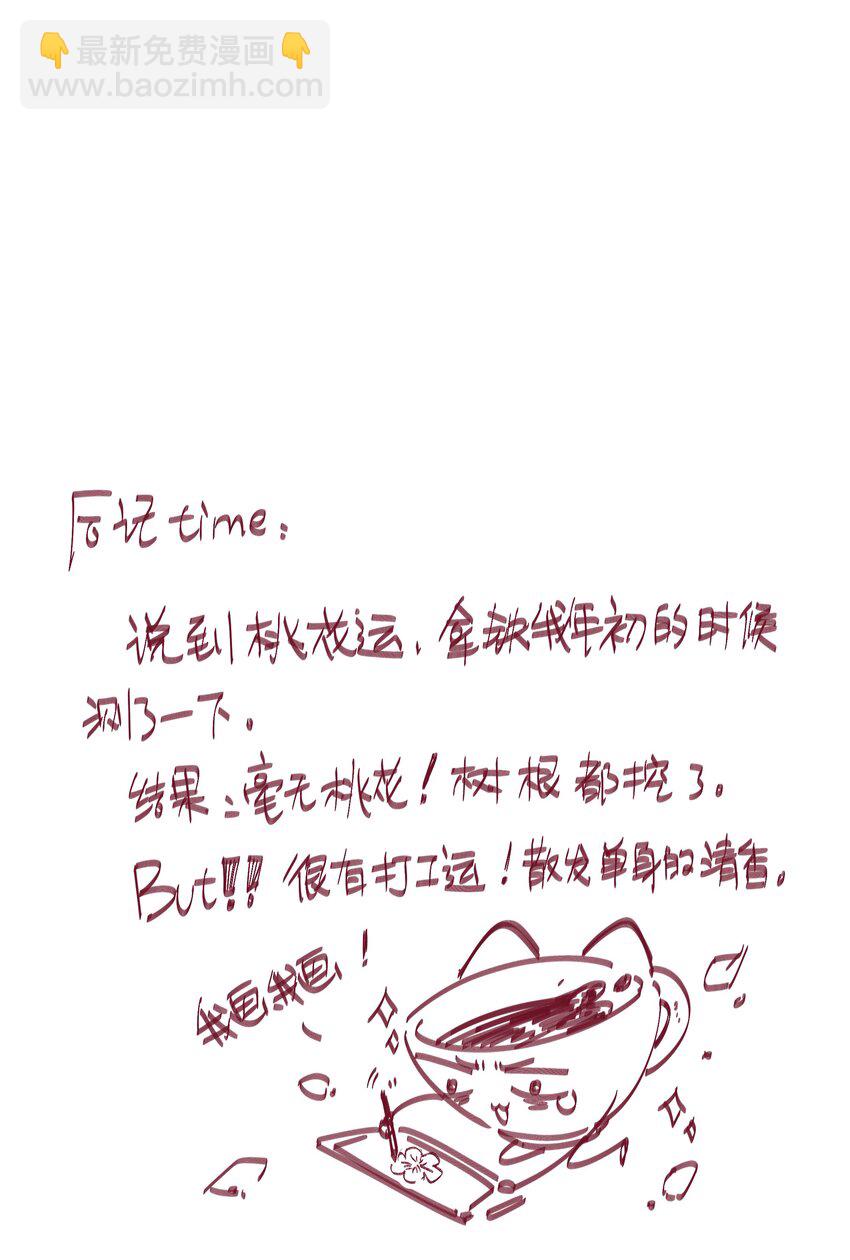 👇最新免费漫画👇
www.baozimh.com
后记time:
说到桃花运、拿铁我年初的时候
测了一下。
结果:毫无桃花!树根都挖了。
But!!! 很有打工运!散发单身的清香。
我画我画!